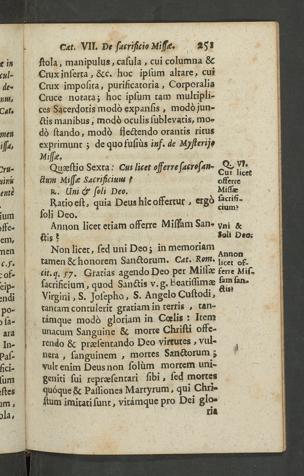 Cat. VII. De sacrificio Missæ. 251
stola, manipulus, casula, cui columna &
Crux inserta, &c. hoc ipsum altare, cui
Crux imposita, purificatoria, Corporalia
Cruce notata; hoc ipsum tam multipli-
ces Sacerdotis modò expansis, modò jun-
ctis manibus, modò oculis sublevatis, mo-
dò stando, modò flectendo orantis ritus
exprimunt; de quo fusiùs inf. de Mysterijs
Missæ.
Quæstio Sexta: Cui licet offerre sacrosan-
ctum Missæ Sacrificium?
R. Uni & soli Deo.
Ratio est, quia Deus hîc offertur, ergò
soli Deo.
Annon licet etiam offerre Missam San-
ctis?
Non licet, sed uni Deo; in memoriam
tamen & honorem Sanctorum. Cat. Rom.
cit. q. 57. Gratias agendo Deo per Missæ
sacrificium, quod Sanctis v. g. Beatissimæ
Virgini, S. Josepho, S. Angelo Custodi,
tantam contulerit gratiam in terris, tan-
támque modò gloriam in Cœlis: Item
unacum Sanguine & morte Christi offe-
rendo & præsentando Deo virtutes, vul-
nera, sanguinem, mortes Sanctorum;
vult enim Deus non solùm mortem uni-
geniti sui repræsentari sibi, sed mortes
quóque & Passiones Martyrum, qui Chri-
stum imitati sunt, vitámque pro Dei glo-
ria
Q. VI.
Cui licet
offerre
Missæ
sacrifi-
cium?
Uni &
soli Deo.
Annon
licet of-
ferre Mis-
sam san-
ctis?